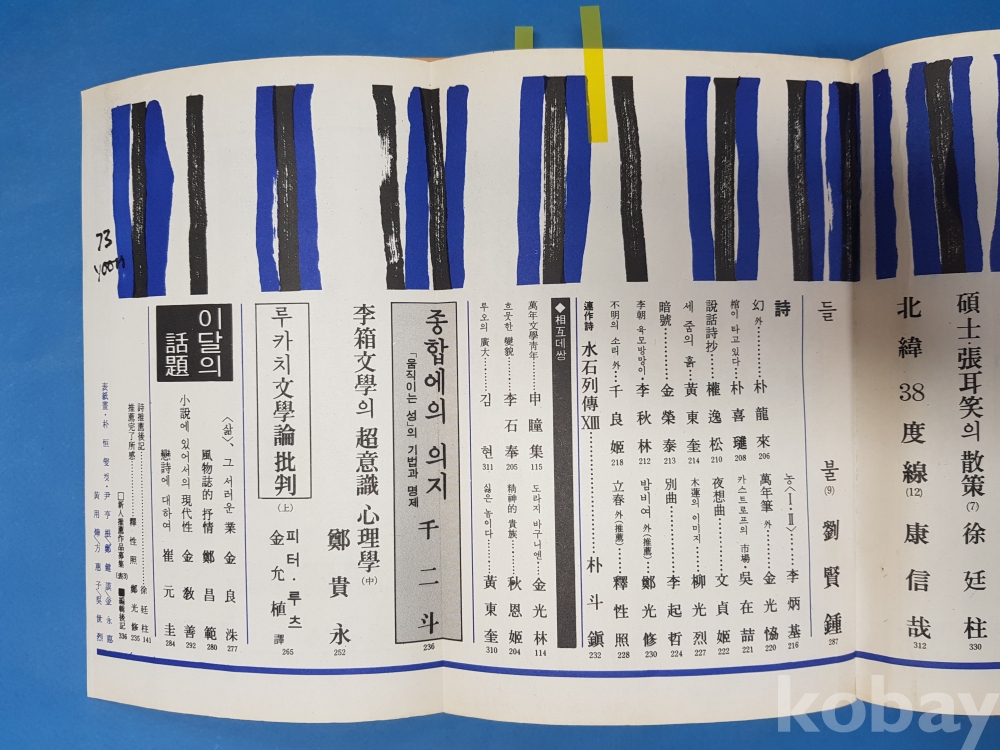 碩士張耳笑의 散策 (7) 徐廷柱 330
北緯 38 度線 (12) 康信哉 312
들불 (9) 劉賢鍾 287
詩
幻 外 朴龍來 206
棺이 타고 있다 朴喜璡 208
說話詩抄 權逸松 210
세 줌의 흙 黃東奎 214
暗號 金榮泰 213
李朝 육모방망이 李秋林 212
不明의 소리 外 千良姬 218
連作詩 水石列傳 XIII 朴斗鎭 232
농〈Ⅰ·Ⅱ〉 李炳基 216
萬年筆 外 金光協 220
카스트로프의 市場 吳在喆 221
夜想曲 文貞姬 222
木蓮의 이미지 柳光烈 227
別曲 李起哲 224
밤비여 外〈推薦〉 鄭光修 230
立春 外〈推薦〉 釋性照 228
◆相互데쌍
萬年文學靑年 申瞳集 115
흐뭇한 變貌 李石奉 205
루오의 廣大 김현 311
도라지 바구니엔 金光林 114
精神的 貴族 秋恩姬 204
싫은 놈이다 黃東奎 310
종합에의 의지
「움직이는 성」의 기법과 명제
千二斗 236
李箱文學의 超意識 心理學 (中) 鄭貴永 252
루카치文學論批判 (上)
피터·루츠
金允植 譯 265
이달의
話題
〈삶〉, 그 서러운 業 金良洙 277
風物誌的 抒情 鄭昌範 280
小說에 있어서의 現代性 金敎善 292
戀詩에 대하여 崔元圭 284
詩推薦後記 徐廷柱 141
推薦完了所感 釋性照 鄭光修 235
□新人推薦作品募集 (表3) ■編輯後記 336
表紙畫·朴栢
73
YOON
kobay